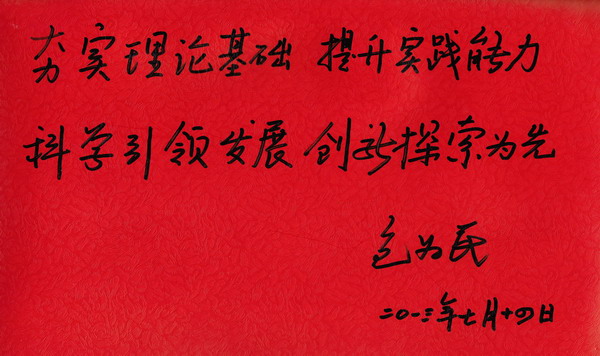 夯实理论基础 提升实践能力
科学引领发展 创新探索为先
包为民
二〇一三年七月十四日